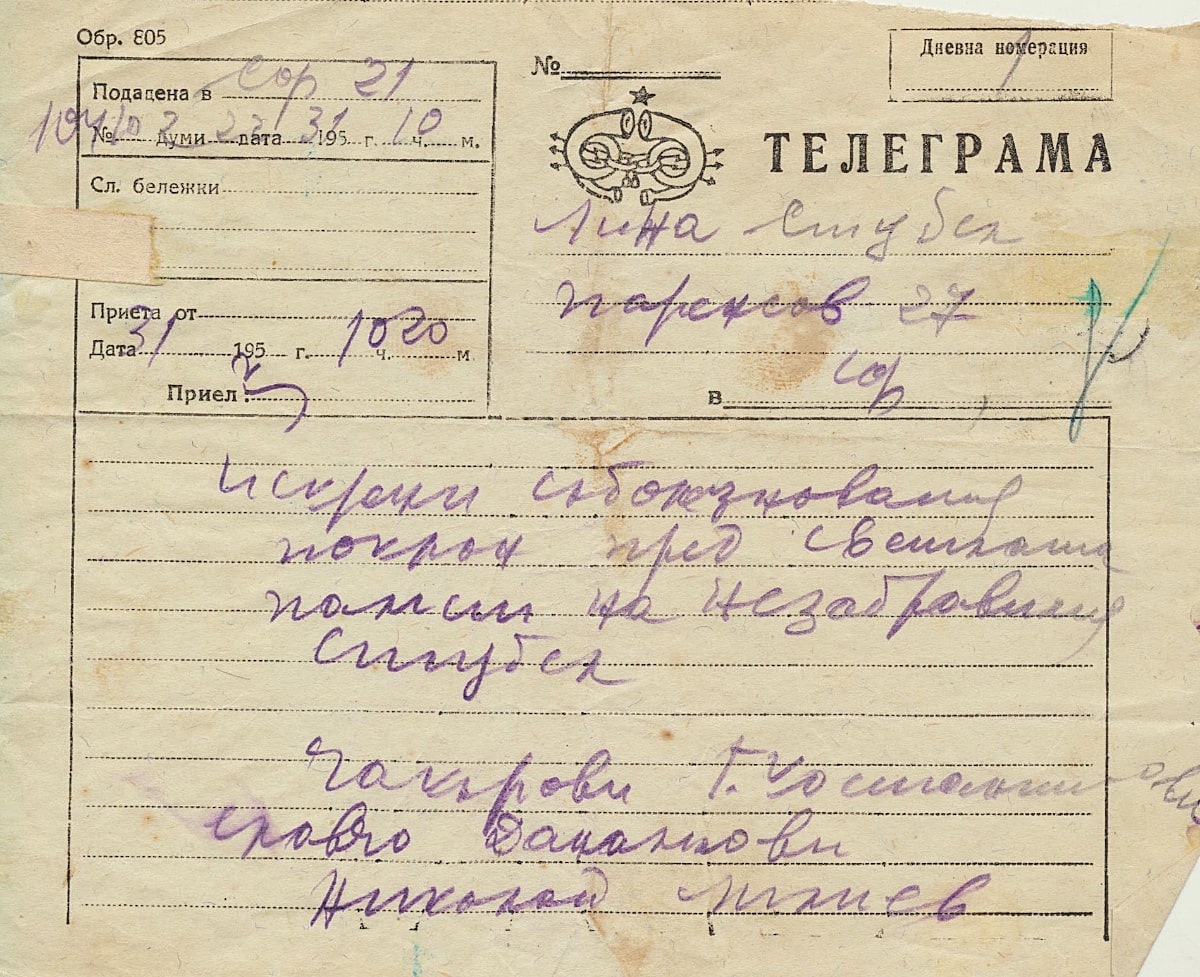 Обр. 805
Дневна номерация
1
Подадена в Соф 21
№ думи 22 дата 31 195 г. 10 ч. м.
Сл. бележки
Приета от
Дата 31 195 г. 10 ч. 20 м
Приел:
№
ТЕЛЕГРАМА
Лина Стубел
27
в Соф
Искрени съболезнования
поклон пред светлата
памет на незабравимия
Стубел
Чакърови Г. Костантинови
Славчо Даналиови
Николай Лилиев